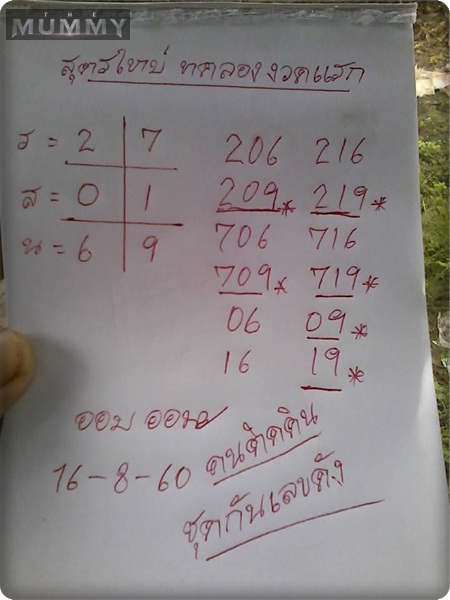 THE MUMMY
สูตรใหม่ ทดลองงวดแรก
ร = 2 7
ส = 0 1
น = 6 9
206 216
209* 219*
706 716
709* 719*
06 09*
16 19*
ออม ออม
16-8-60 คนติดดิน
ชุดกันเลขดัง